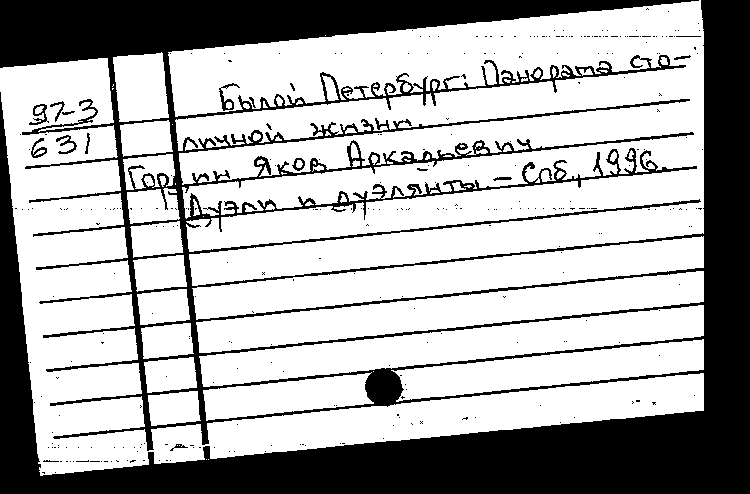 97-3
631
Былой Петербург: Панорама сто-
личной жизни.
Гордин, Яков Аркадьевич.
Дуэли и дуэлянты. - Спб., 1996.